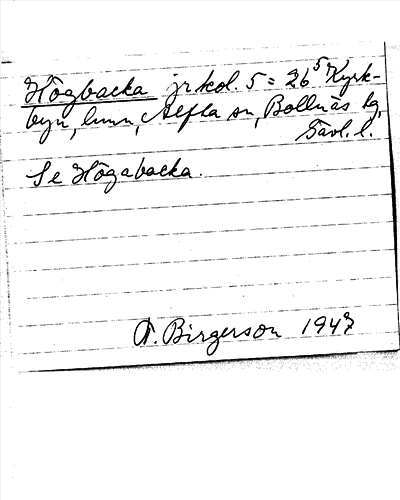 Högbacka jrkol. 5 = 26⁵ Kyrk-
byn, hmn, Alfta sn, Bollnäs tg,
Gävl. l.
Se Högabacka.
A. Birgerson 1947